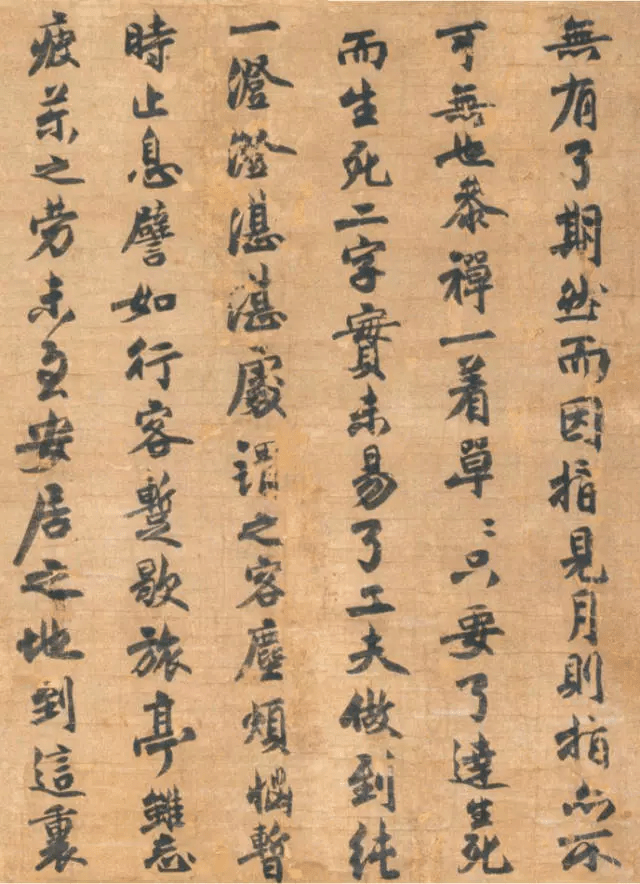 無有了期然而因指見月則指亦不
可無也參禪一着單〻只要了達生死
而生死二字實未易了工夫做到純
一澄澄湛湛處謂之客塵煩惱暫
時止息譬如行客蹔歇旅亭雖忘
疲苶之勞未至安居之地到這裏